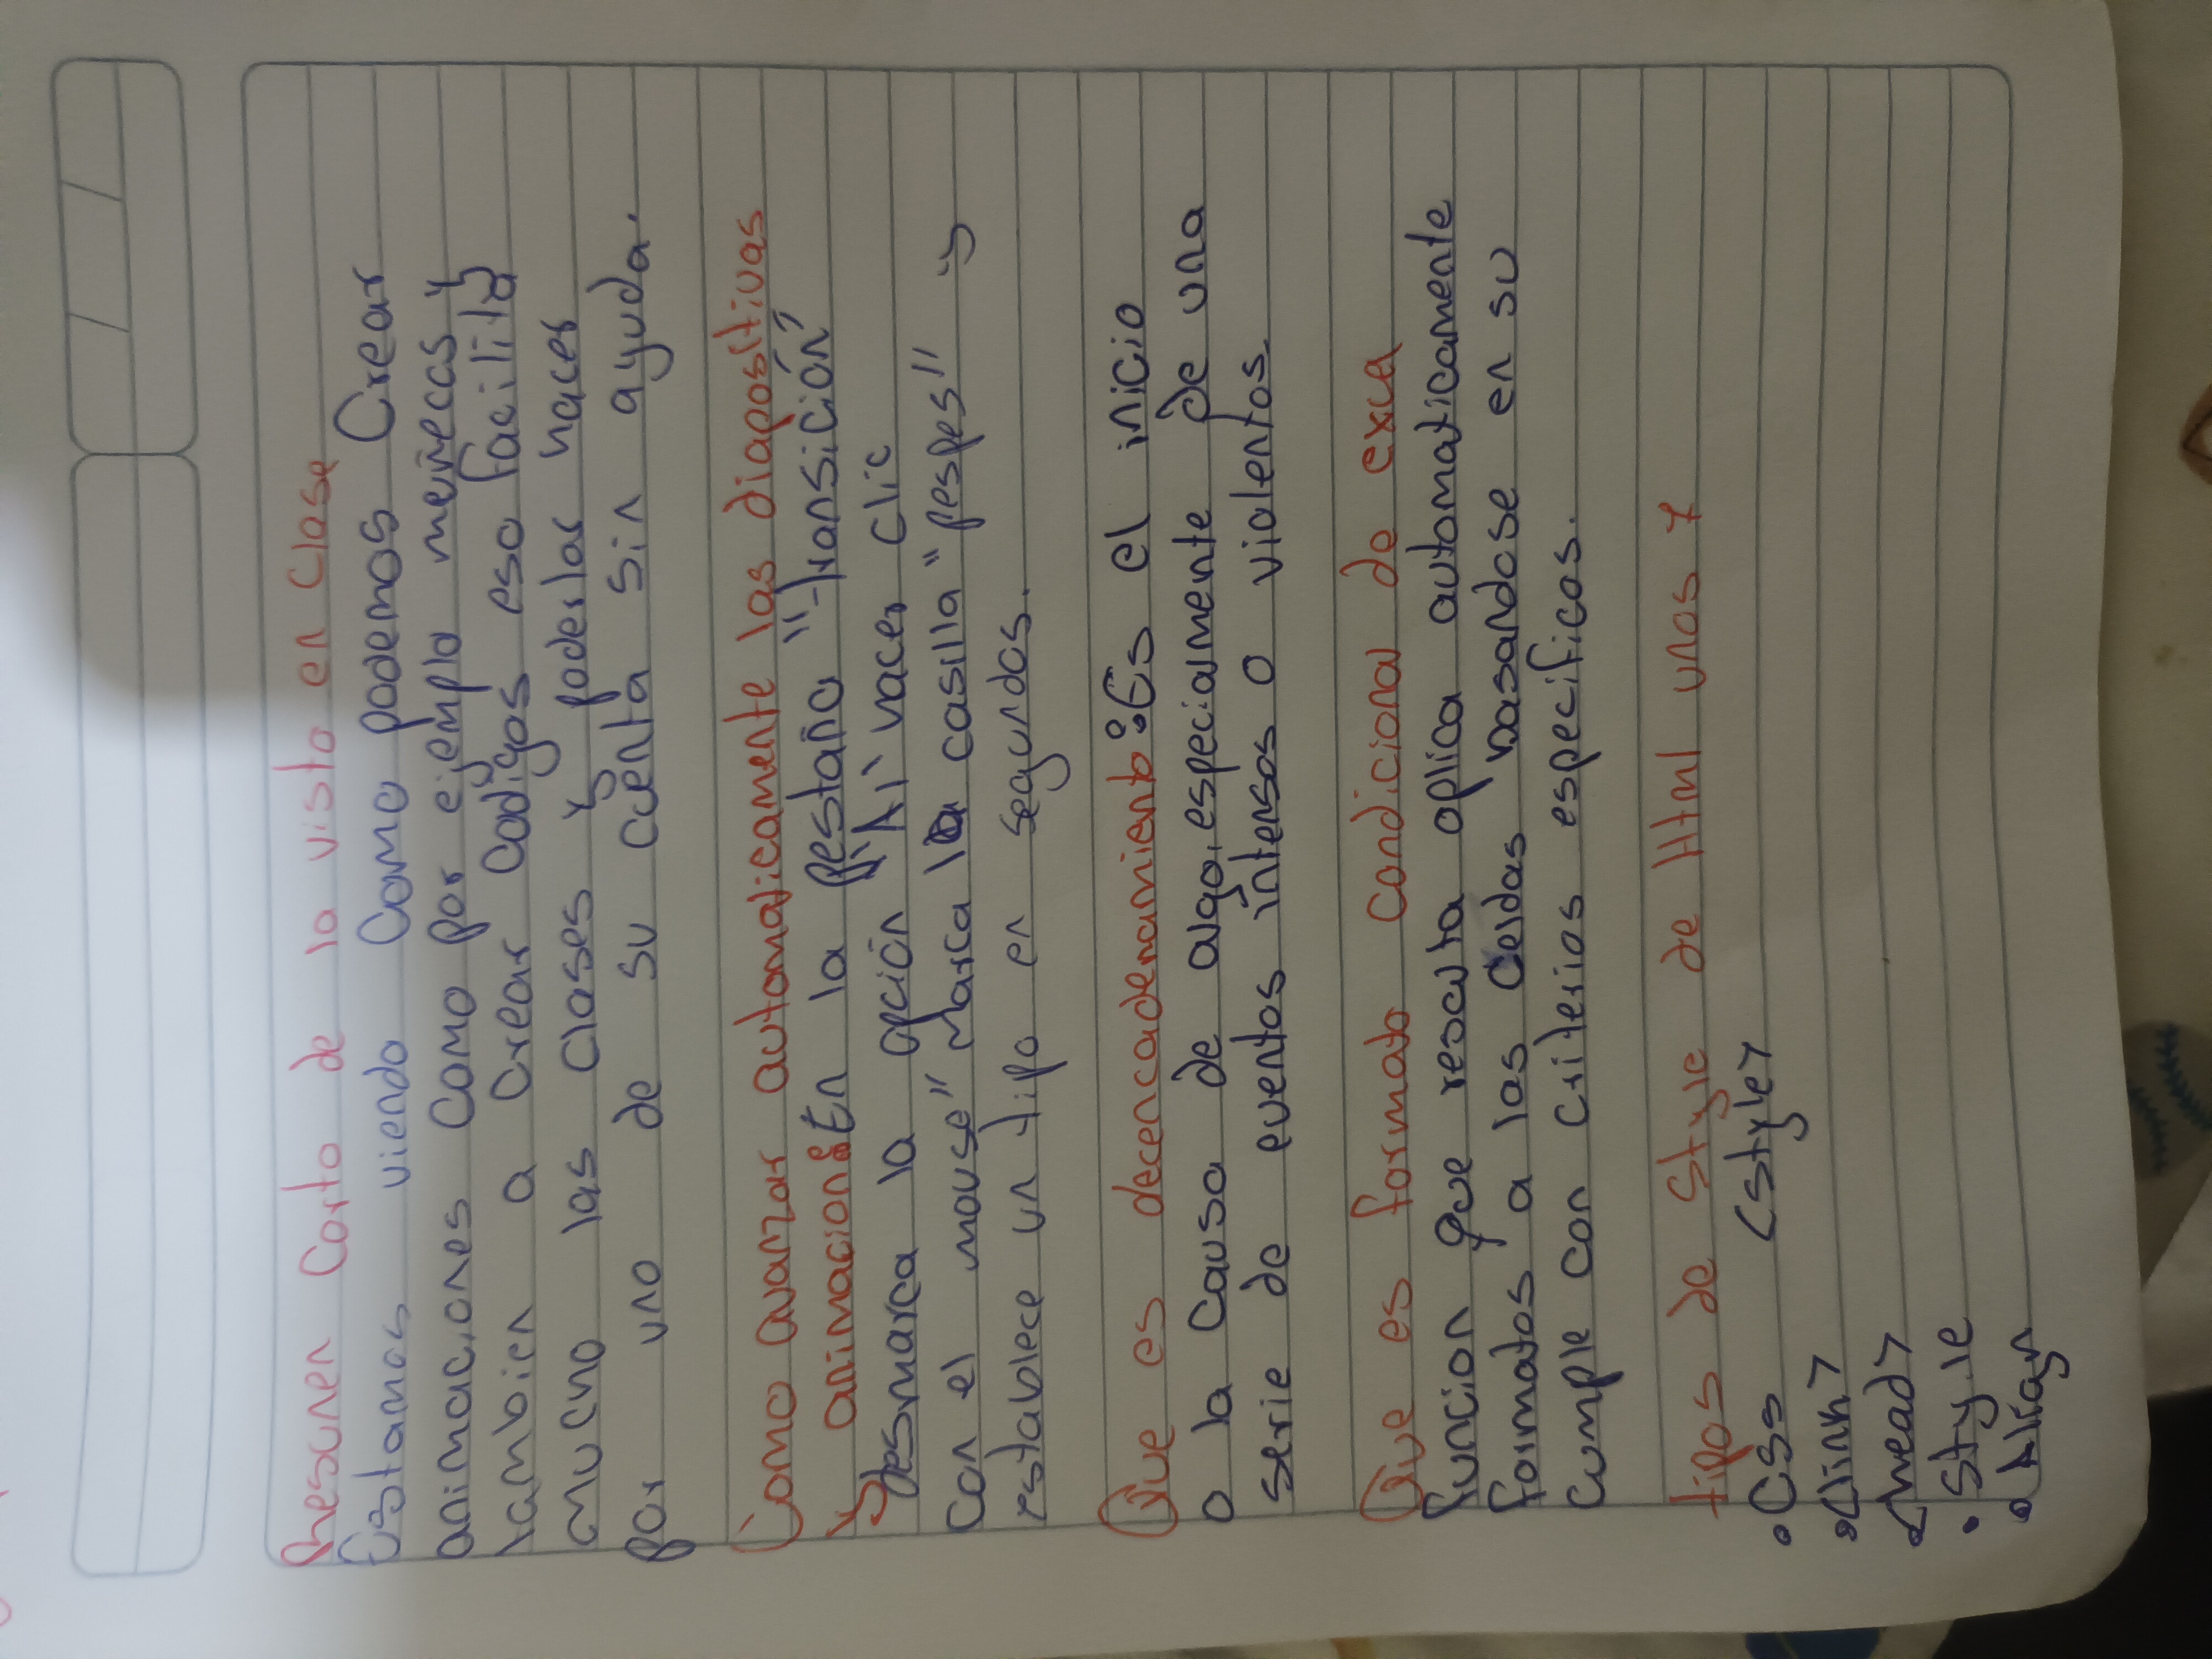 Resumen Corto de lo visto en Clase
Estamos viendo Como podemos Crear
animaciones Como por ejemplo meñecas y
tambien a Crear Codigos eso facilita
mucho las Clases y poderlas hacer
por uno de su cuenta sin ayuda.
Como avanzar automaticamente las diapositivas
y animacion: En la pestaña "transición"
Desmarca la opción "Al hacer clic
con el mouse" Marca la casilla "Despes" y
establece un tipo en segundos.
Que es decencadenamiento: Es el inicio
o la Causa de algo, especialmente De una
serie de eventos intensos o violentos.
Que es formato condicional de exel
función que resalta aplica automaticamente
formatos a las Celdas basandose en su
Cumple con Criterios especificos.
tipos de Style de Html unos y
• Css <Style>
• <link>
• <head>
• Style
• Align